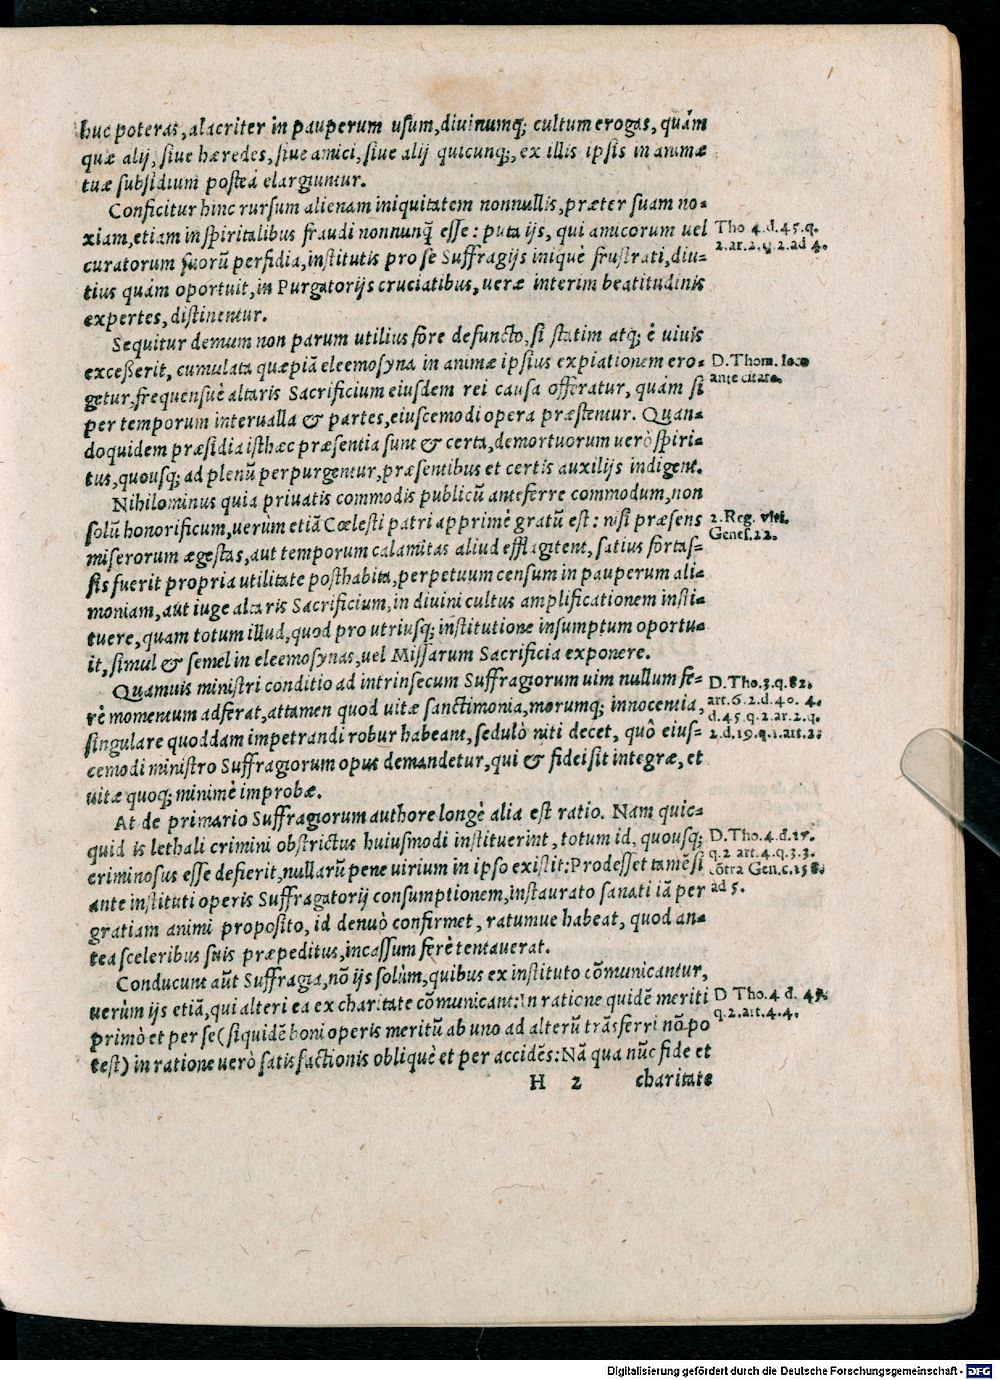 huc poteras, alacriter in pauperum usum, diuinumq; cultum erogas, quàm
quæ alij, siue hæredes, siue amici, siue alij quicunq;, ex illis ipsis in animæ
tuæ subsidium posteà elargiuntur.
Conficitur hinc rursum alienam iniquitatem nonnullis, præter suam no-
xiam, etiam in spiritalibus fraudi nonnunq̃ esse: puta ijs, qui amicorum uel
Tho 4. d. 45. q.
2. ar. 2. q. 2. ad 4.
curatorum suorũ perfidia, institutis pro se Suffragijs iniquè frustrati, diu-
tius quàm oportuit, in Purgatorijs cruciatibus, ueræ interim beatitudinis
expertes, distinentur.
Sequitur demum non parum utilius fore defuncto, si statim atq; è uiuis
exceßerit, cumulata quæpiã eleemosyna in animæ ipsius expiationem ero-
D. Thom. loco
ante citato.
getur, frequensuè altaris Sacrificium eiusdem rei causa offeratur, quàm si
per temporum interualla & partes, eiuscemodi opera præstentur. Quan-
doquidem præsidia isthæc præsentia sunt & certa, demortuorum uerò spiri-
tus, quousq; ad plenũ perpurgentur, præsentibus et certis auxilijs indigent.
Nihilominus quia priuatis commodis publicũ anteferre commodum, non
solũ honorificum, uerùm etiã Cœlesti patri apprimè gratũ est: nisi præsens
2. Reg. vlti.
Genes. 22.
miserorum ægestas, aut temporum calamitas aliud efflagitent, satius fortas-
sis fuerit propria utilitate posthabita, perpetuum censum in pauperum ali-
moniam, aut iuge altaris Sacrificium, in diuini cultus amplificationem insti-
tuere, quam totum illud, quod pro utriusq; institutione insumptum oportu-
it, simul & semel in eleemosynas, uel Missarum Sacrificia exponere.
Quamuis ministri conditio ad intrinsecum Suffragiorum uim nullum fe-
rè momentum adferat, attamen quod uitæ sanctimonia, morumq; innocentia,
singulare quoddam impetrandi robur habeant, sedulò niti decet, quò eius-
D. Tho. 3. q. 82.
art. 6. 2. d. 40. 4.
d. 45. q. 2. ar. 2. q.
2. d. 19. q. 1. art. 2.
cemodi ministro Suffragiorum opus demandetur, qui & fidei sit integræ, et
uitæ quoq; minimè improbæ.
At de primario Suffragiorum authore longè alia est ratio. Nam quic-
quid is lethali crimini obstrictus huiusmodi instituerint, totum id, quousq;
criminosus esse defierit, nullarũ pene uirium in ipso existit: Prodesset tamẽ si
D. Tho. 4. d. 15.
q. 2 art. 4. q. 3. 3.
cõtra Gen. c. 158.
ad 5.
ante instituti operis Suffragatorij consumptionem, instaurato sanati iã per
gratiam animi proposito, id denuò confirmet, ratumue habeat, quod an-
tea sceleribus suis præpeditus, incassum ferè tentauerat.
Conducunt aũt Suffragia, nõ ijs solùm, quibus ex instituto cõmunicantur,
uerùm ijs etiã, qui alteri ea ex charitate cõmunicant: In ratione quidẽ meriti
D Tho. 4 d. 45.
q. 2. art. 4. 4.
primò et per se (siquidẽ boni operis meritũ ab uno ad alterũ trãsferri nõ po
test) in ratione uerò satisfactionis obliquè et per accidẽs: Nã qua nũc fide et
H 2 charitate
Digitalisierung gefördert durch die Deutsche Forschungsgemeinschaft - DFG